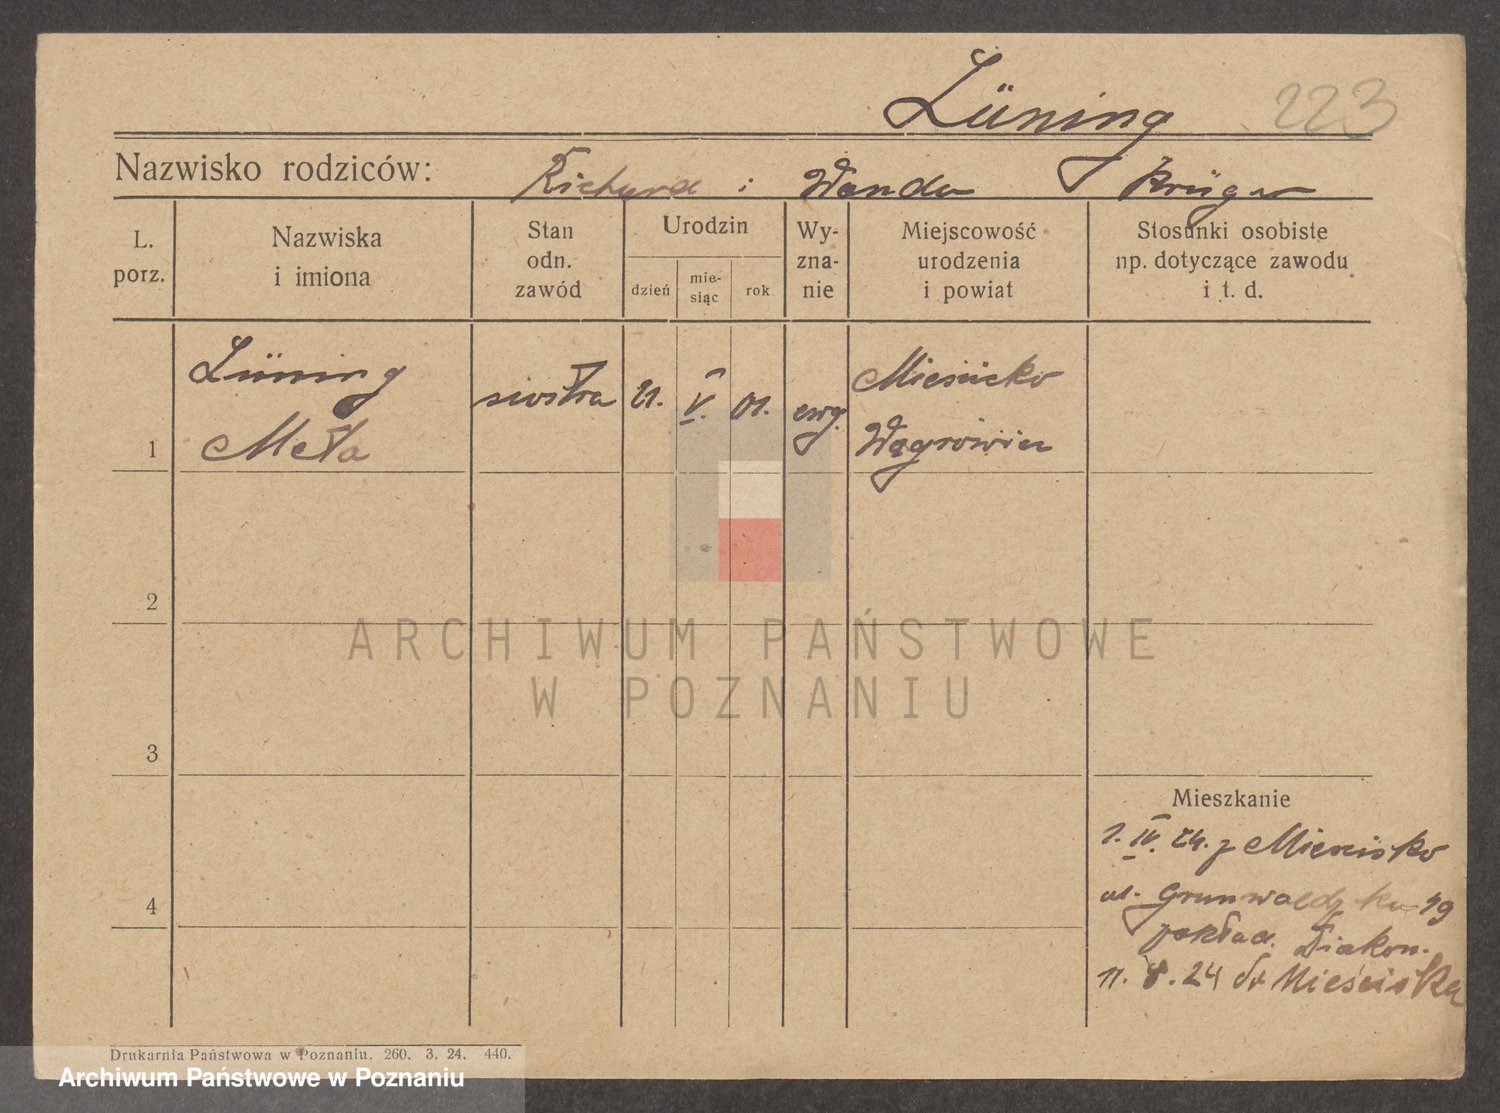 Lüning 223
Nazwisko rodziców: Richard i Wanda Krüger
L. porz.
Nazwiska i imiona
Stan odn. zawód
Urodzin
dzień
mie-siąc
rok
Wy-zna-nie
Miejscowość urodzenia i powiat
Stosunki osobiste np. dotyczące zawodu i t. d.
1
Lüning
Meta
siostra
21.
V.
01.
ewg.
Mieścisko
Wągrowiec
2
3
4
Mieszkanie
1. IV. 24. z Mieścisko
ul. Grunwaldzka 49
zakład. Diakon.
11. 8. 24 do Mieściska
Drukarnia Państwowa w Poznaniu. 260. 3. 24. 440.
ARCHIWUM PAŃSTWOWE
W POZNANIU
Archiwum Państwowe w Poznaniu